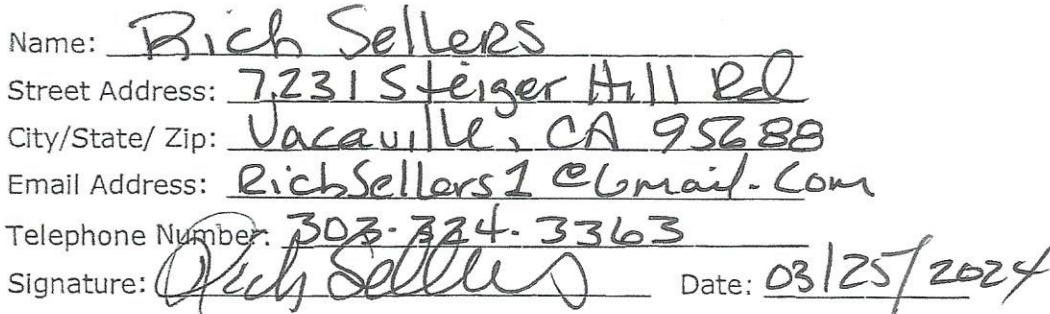 Name: Rich Sellers
Street Address: 7231 Steiger Hill Rd
City/State/ Zip: Vacaville, CA 95688
Email Address: RichSellers1@Gmail.Com
Telephone Number: 303-324-3363
Signature: Rich Sellers Date: 03/25/2024